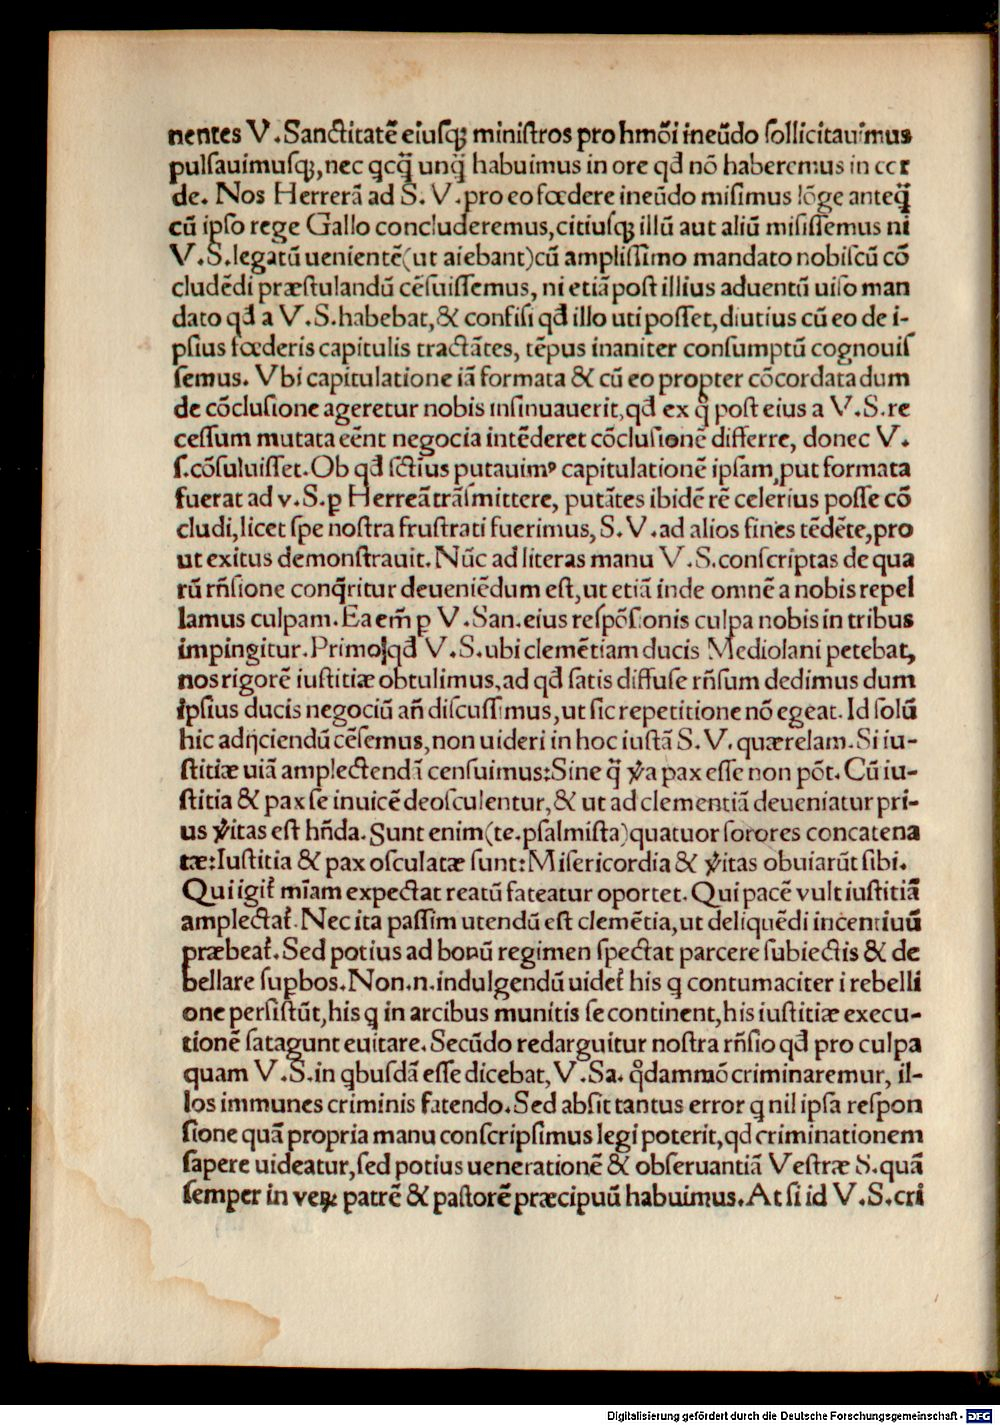 nentes V.Sanctitatē eiusq; ministros pro hmōi ineūdo sollicitauimus
pulsauimusq;, nec qcq̄ unq̄ habuimus in ore qđ nō haberemus in cor
de. Nos Herrerā ad S. V. pro eo fœdere ineūdo misimus lōge anteq̄
cū ipso rege Gallo concluderemus, citiusq; illū aut aliū misissemus ni
V.S.legatū uenientē(ut aiebant)cū amplissimo mandato nobiscū cō
cludēdi præstulandū cēsuissemus, ni etiā post illius aduentū uiso man
dato qđ a V.S.habebat,& confisi qđ illo uti posset,diutius cū eo de i-
psius fœderis capitulis tractātes, tēpus inaniter consumptū cognouis
semus. Vbi capitulatione iā formata & cū eo propter cōcordata dum
de cōclusione ageretur nobis insinuauerit,qđ ex q̄ post eius a V.S.re
cessum mutata eēnt negocia intēderet cōclusionē differre, donec V.
S.cōsuluisset.Ob qđ sctius putauim⁹ capitulationē ipsam,put formata
fuerat ad v.S.p Herreā trāsmittere, putātes ibidē rē celerius posse cō
cludi,licet spe nostra frustrati fuerimus,S.V.ad alios fines tēdēte,pro
ut exitus demonstrauit.Nūc ad literas manu V.S.conscriptas de qua
rū rn̄sione conq̄ritur deueniēdum est,ut etiā inde omnē a nobis repel
lamus culpam.Ea em̄ p V.San.eius respōsionis culpa nobis in tribus
impingitur.Primo qđ V.S.ubi clemētiam ducis Mediolani petebat,
nos rigorē iustitiæ obtulimus,ad qđ satis diffuse rn̄sum dedimus dum
ipsius ducis negociū an̄ discussimus,ut sic repetitione nō egeat.Id solū
hic adijciendū cēsemus,non uideri in hoc iustā S.V.quærelam.Si iu-
stitiæ uiā amplectendā censuimus:Sine q̄ v̄a pax esse non pōt.Cū iu-
stitia & pax se inuicē deosculentur,& ut ad clementiā deueniatur pri-
us v̄itas est hn̄da.Sunt enim(te.psalmista)quatuor sorores concatena
tæ:Iustitia & pax osculatæ sunt:Misericordia & v̄itas obuiarūt sibi.
Qui igit̄ mīam expectat reatū fateatur oportet.Qui pacē vult iustitiā
amplectat̄.Nec ita passim utendū est clemētia,ut deliquēdi incentiuū
præbeat̄.Sed potius ad bonū regimen spectat parcere subiectis & de
bellare supbos.Non.n.indulgendū uidet̄ his q contumaciter i rebelli
one persistūt,his q in arcibus munitis se continent,his iustitiæ execu-
tionē satagunt euitare.Secūdo redarguitur nostra rn̄sio qđ pro culpa
quam V.S.in qbusdā esse dicebat,V.Sa. q̊dammō criminaremur, il-
los immunes criminis fatendo.Sed absit tantus error q nil ipsa respon
sione quā propria manu conscripsimus legi poterit,qđ criminationem
sapere uideatur,sed potius uenerationē & obseruantiā Vestræ S.quā
semper in veꝝ patrē & pastorē præcipuū habuimus.At si id V.S.cri
Digitalisierung gefördert durch die Deutsche Forschungsgemeinschaft - DFG